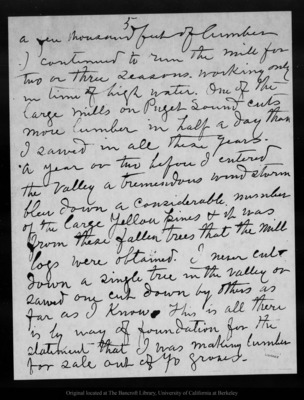 5
a few thousand feet of lumber
I continued to run the mill for
two or three seasons working only
in time of high water. One of the
large mills on Puget Sound cuts
more lumber in half a day than
I sawed in all these years.
A year or two before I entered
the Valley a tremendous wind storm
blew down a considerable number
of the large Yellow pines & it was
from these fallen trees that the mill
logs were obtained. I never cut
down a single tree in the valley or
sawed one cut down by others as
far as I know. This is all there
is by way of foundation for the
statement that I was making lumber
for sale out of Yo groves.
Original located at The Bancroft Library, University of California at Berkeley